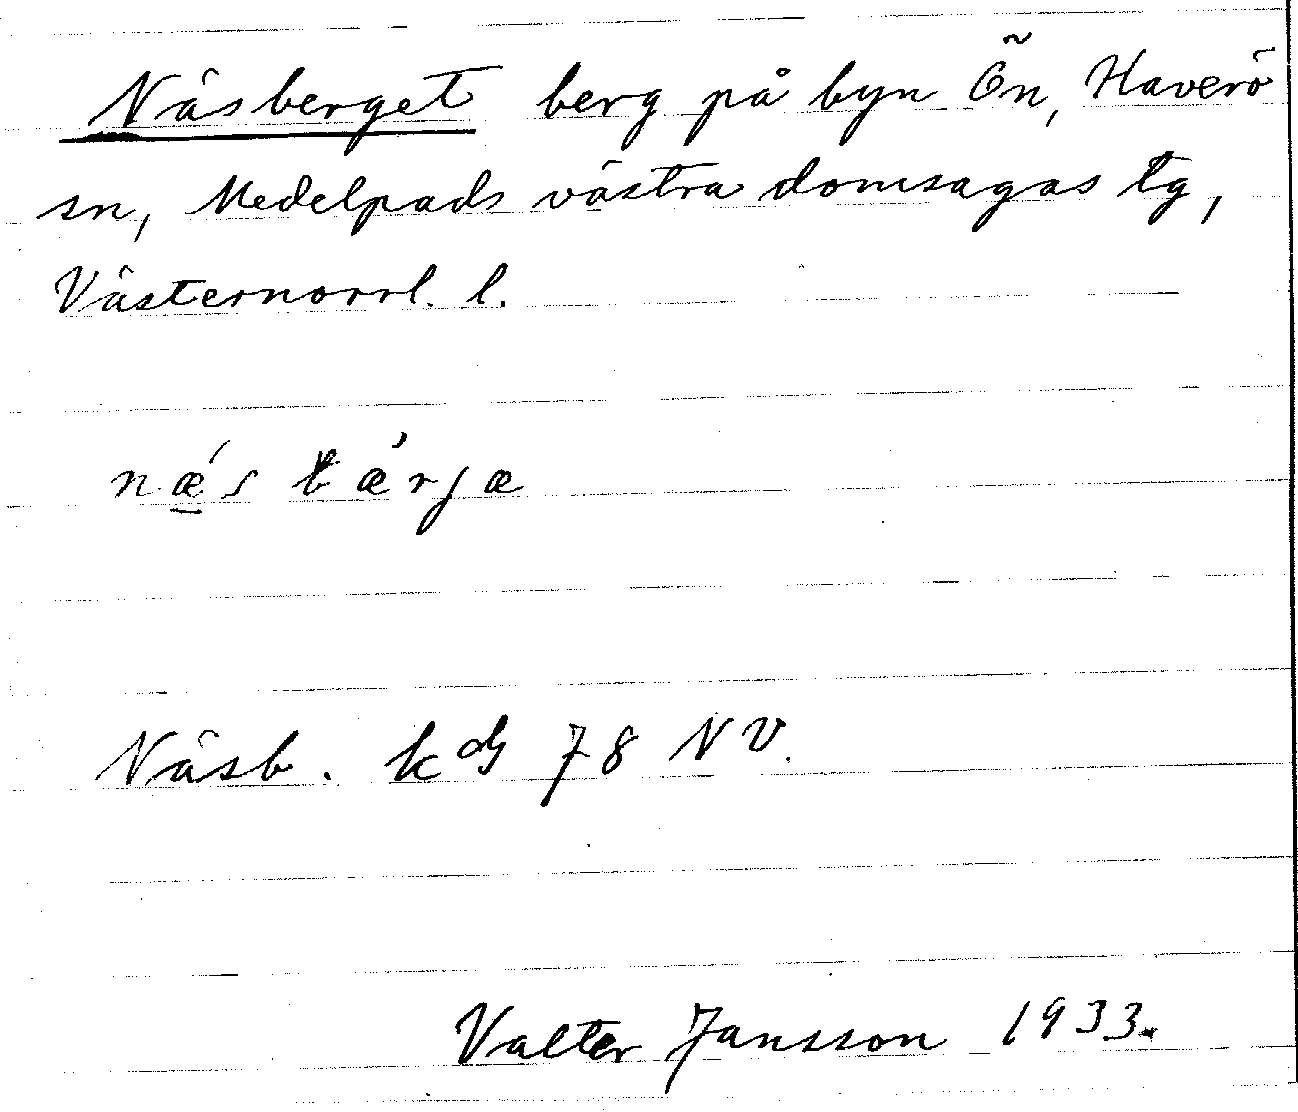 Näsberget berg på byn Ön, Haverö
sn, Medelpads västra domsagas tg,
Västernorrl. l.
Näsb. kdg 78 NV.
Valter Jansson 1933.